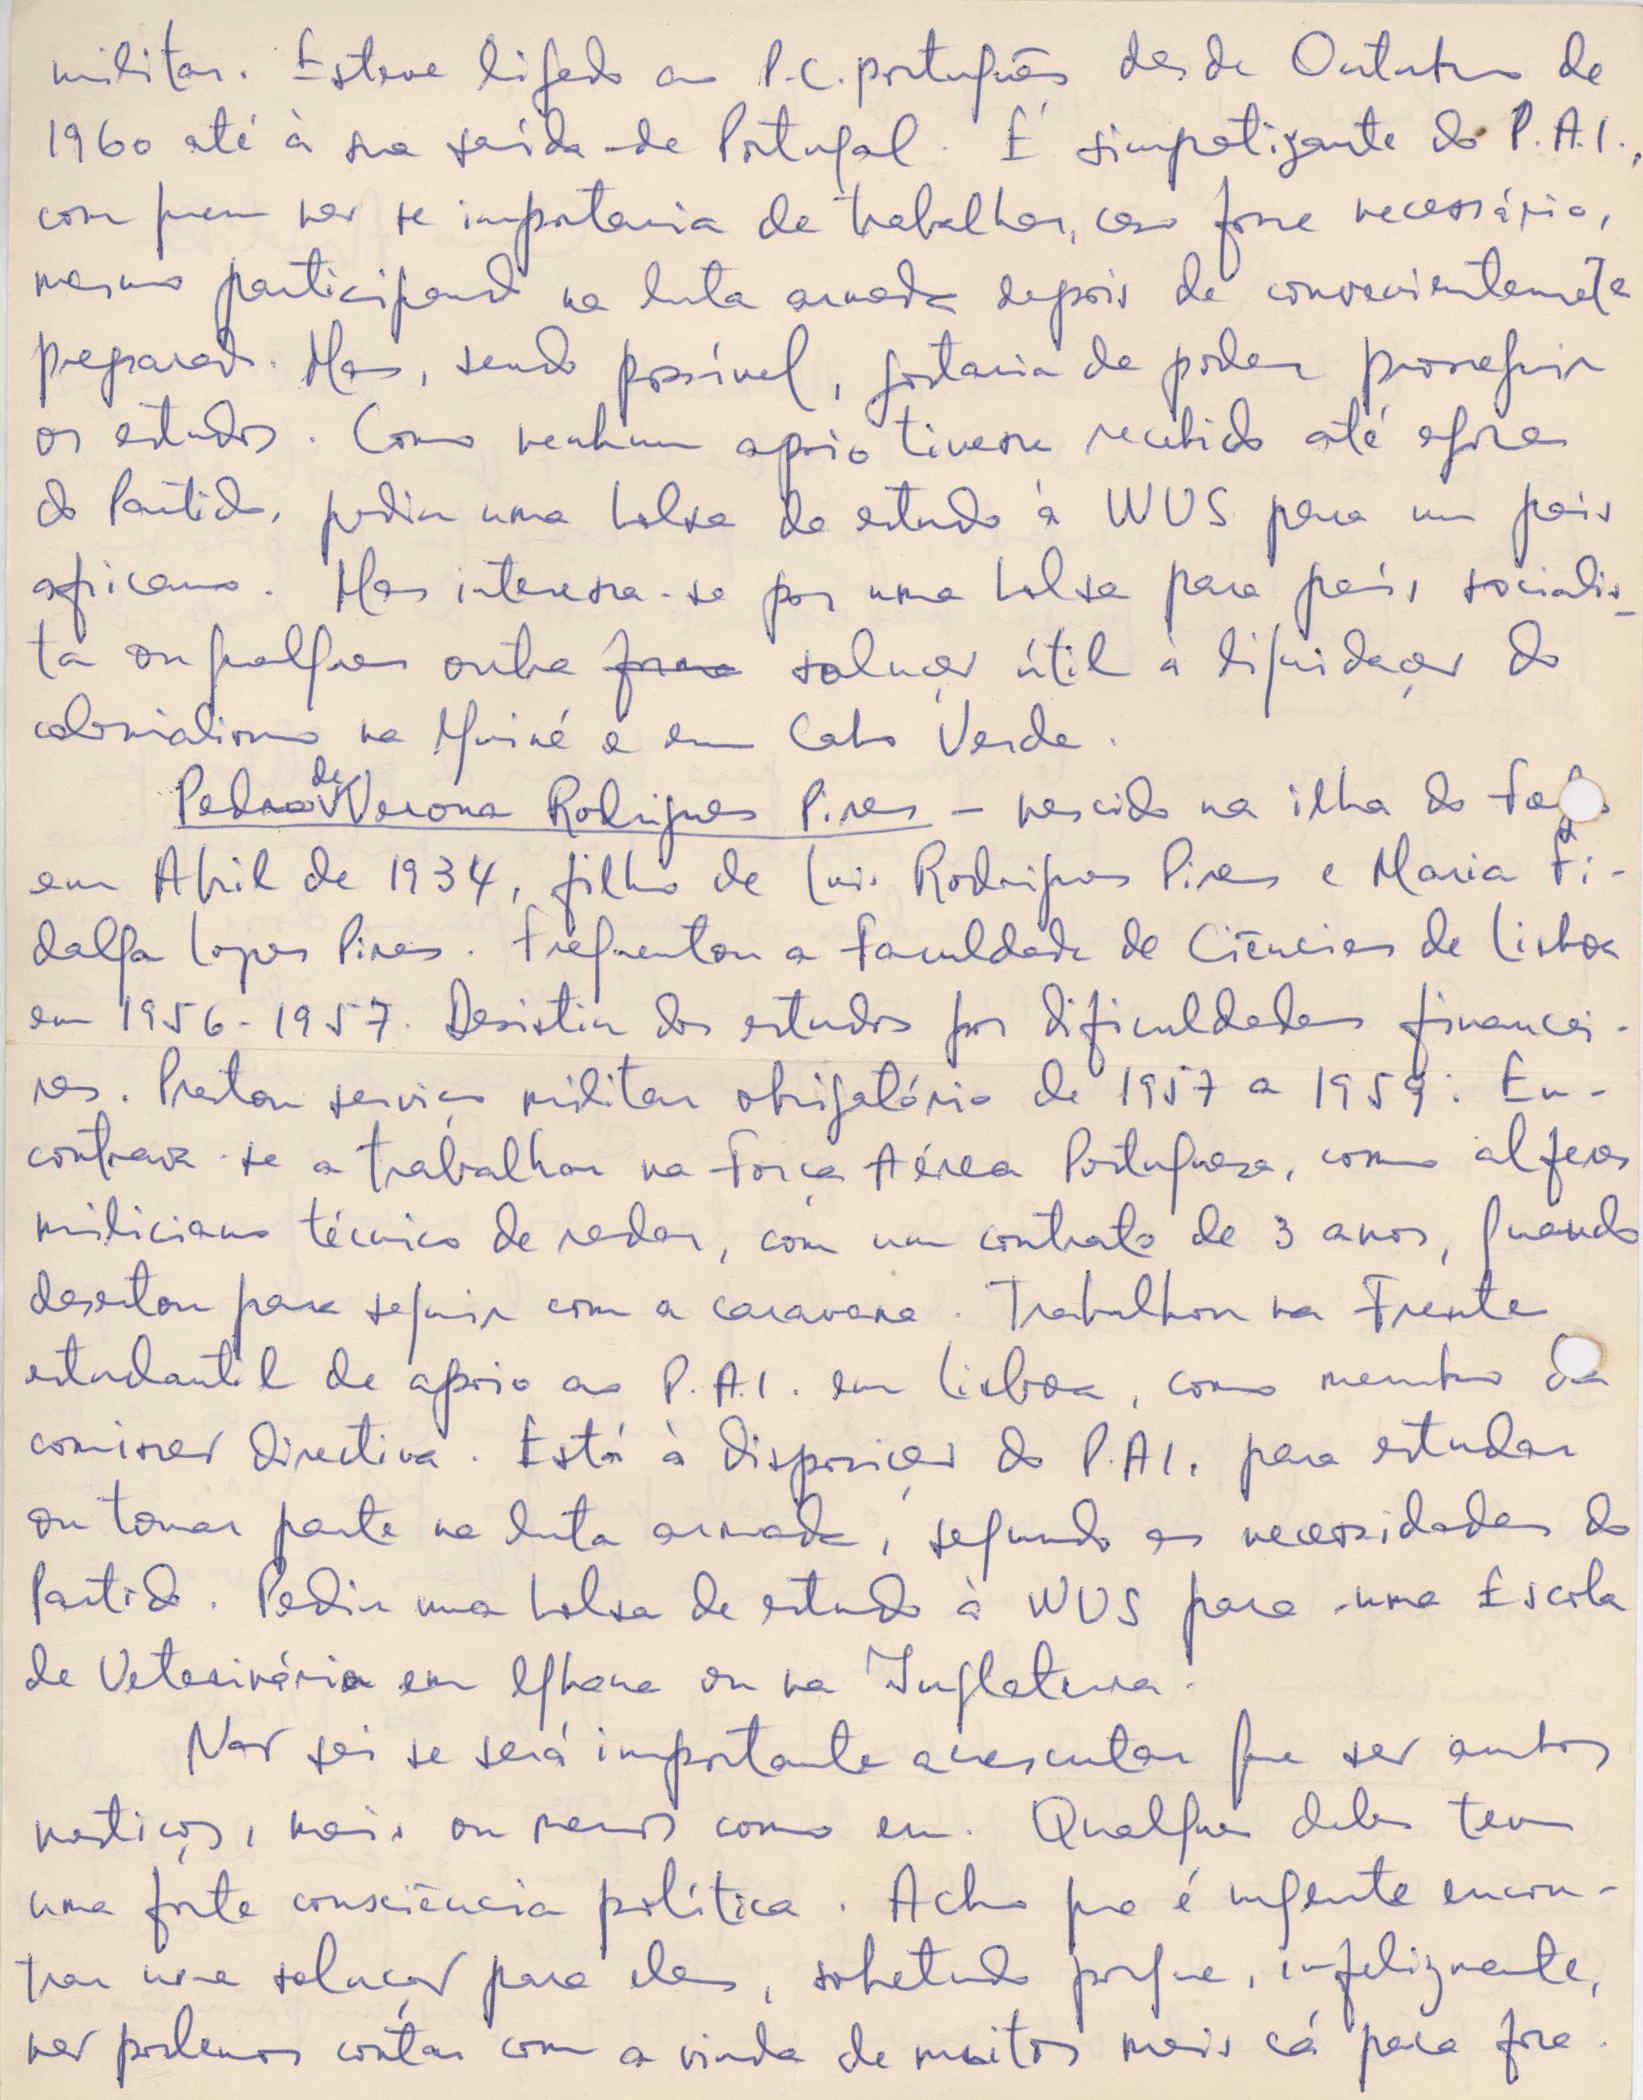 militar. Esteve ligado ao P.C. português desde Outubro de
1960 até à sua saída de Portugal. É simpatizante do P.A.I.,
com quem não se importaria de trabalhar, caso fosse necessário,
mesmo participando na luta armada depois de convenientemente
preparado. Mas, sendo possível, gostaria de poder prosseguir
os estudos. Como nenhum apoio tivesse recebido até agora
do Partido, pediu uma bolsa de estudo à WUS para um país
africano. Mas interessa-se por uma bolsa para país socialis-
ta ou qualquer outra solução útil à liquidação do
colonialismo na Guiné e em Cabo Verde.
Pedro de Verona Rodrigues Pires – nascido na ilha do Fogo
em Abril de 1934, filho de Luís Rodrigues Pires e Maria Fi-
dalga Lopes Pires. Frequentou a Faculdade de Ciências de Lisboa
em 1956-1957. Desistiu dos estudos por dificuldades financei-
ras. Prestou serviço militar obrigatório de 1957 a 1959. En-
contrava-se a trabalhar na Força Aérea Portuguesa, como alferes
miliciano técnico de radar, com um contrato de 3 anos, quando
desertou para seguir com a caravana. Trabalhou na Frente
estudantil de apoio ao P.A.I. em Lisboa, como membro da
comissão directiva. Está à disposição do P.A.I. para estudar
ou tomar parte na luta armada, segundo as necessidades do
Partido. Pediu uma bolsa de estudo à WUS para uma Escola
de Veterinária em Ghana ou na Inglaterra.
Não sei se será importante acrescentar que são ambos
mestiços, mais ou menos como eu. Qualquer deles tem
uma forte consciência política. Acho que é urgente encon-
trar uma solução para eles, sobretudo porque, infelizmente,
não podemos contar com a vinda de muitos mais cá para fora.